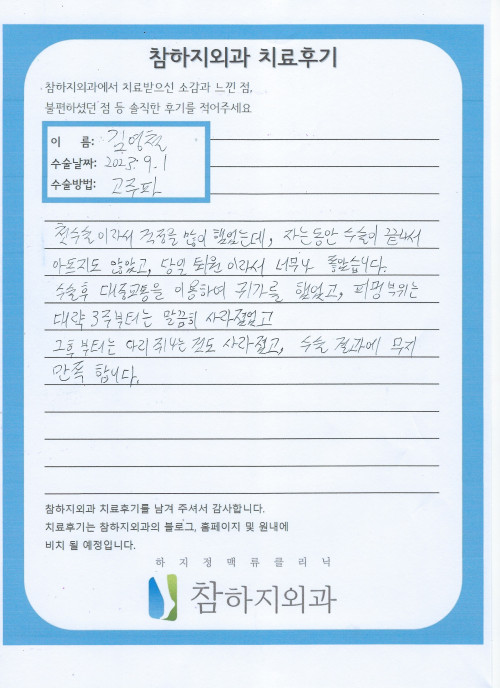 참하지외과 치료후기
참하지외과에서 치료받으신 소감과 느낀 점,
불편하셨던 점 등 솔직한 후기를 적어주세요
이 름: 김영철
수술날짜: 2025. 9. 1
수술방법: 고주파
첫수술이라서 걱정을 많이 했었는데, 자는동안 수술이 끝나서
아프지도 않았고, 당일 퇴원이라서 너무나 좋았습니다.
수술후 대중교통을 이용하여 귀가를 했었고, 피멍부위는
대략 3주부터는 말끔히 사라졌었고
그후부터는 다리 쥐나는 것도 사라졌고, 수술 결과에 무지
만족 합니다.
참하지외과 치료후기를 남겨 주셔서 감사합니다.
치료후기는 참하지외과의 블로그, 홈페이지 및 원내에
비치 될 예정입니다.
하지정맥류클리닉
참하지외과